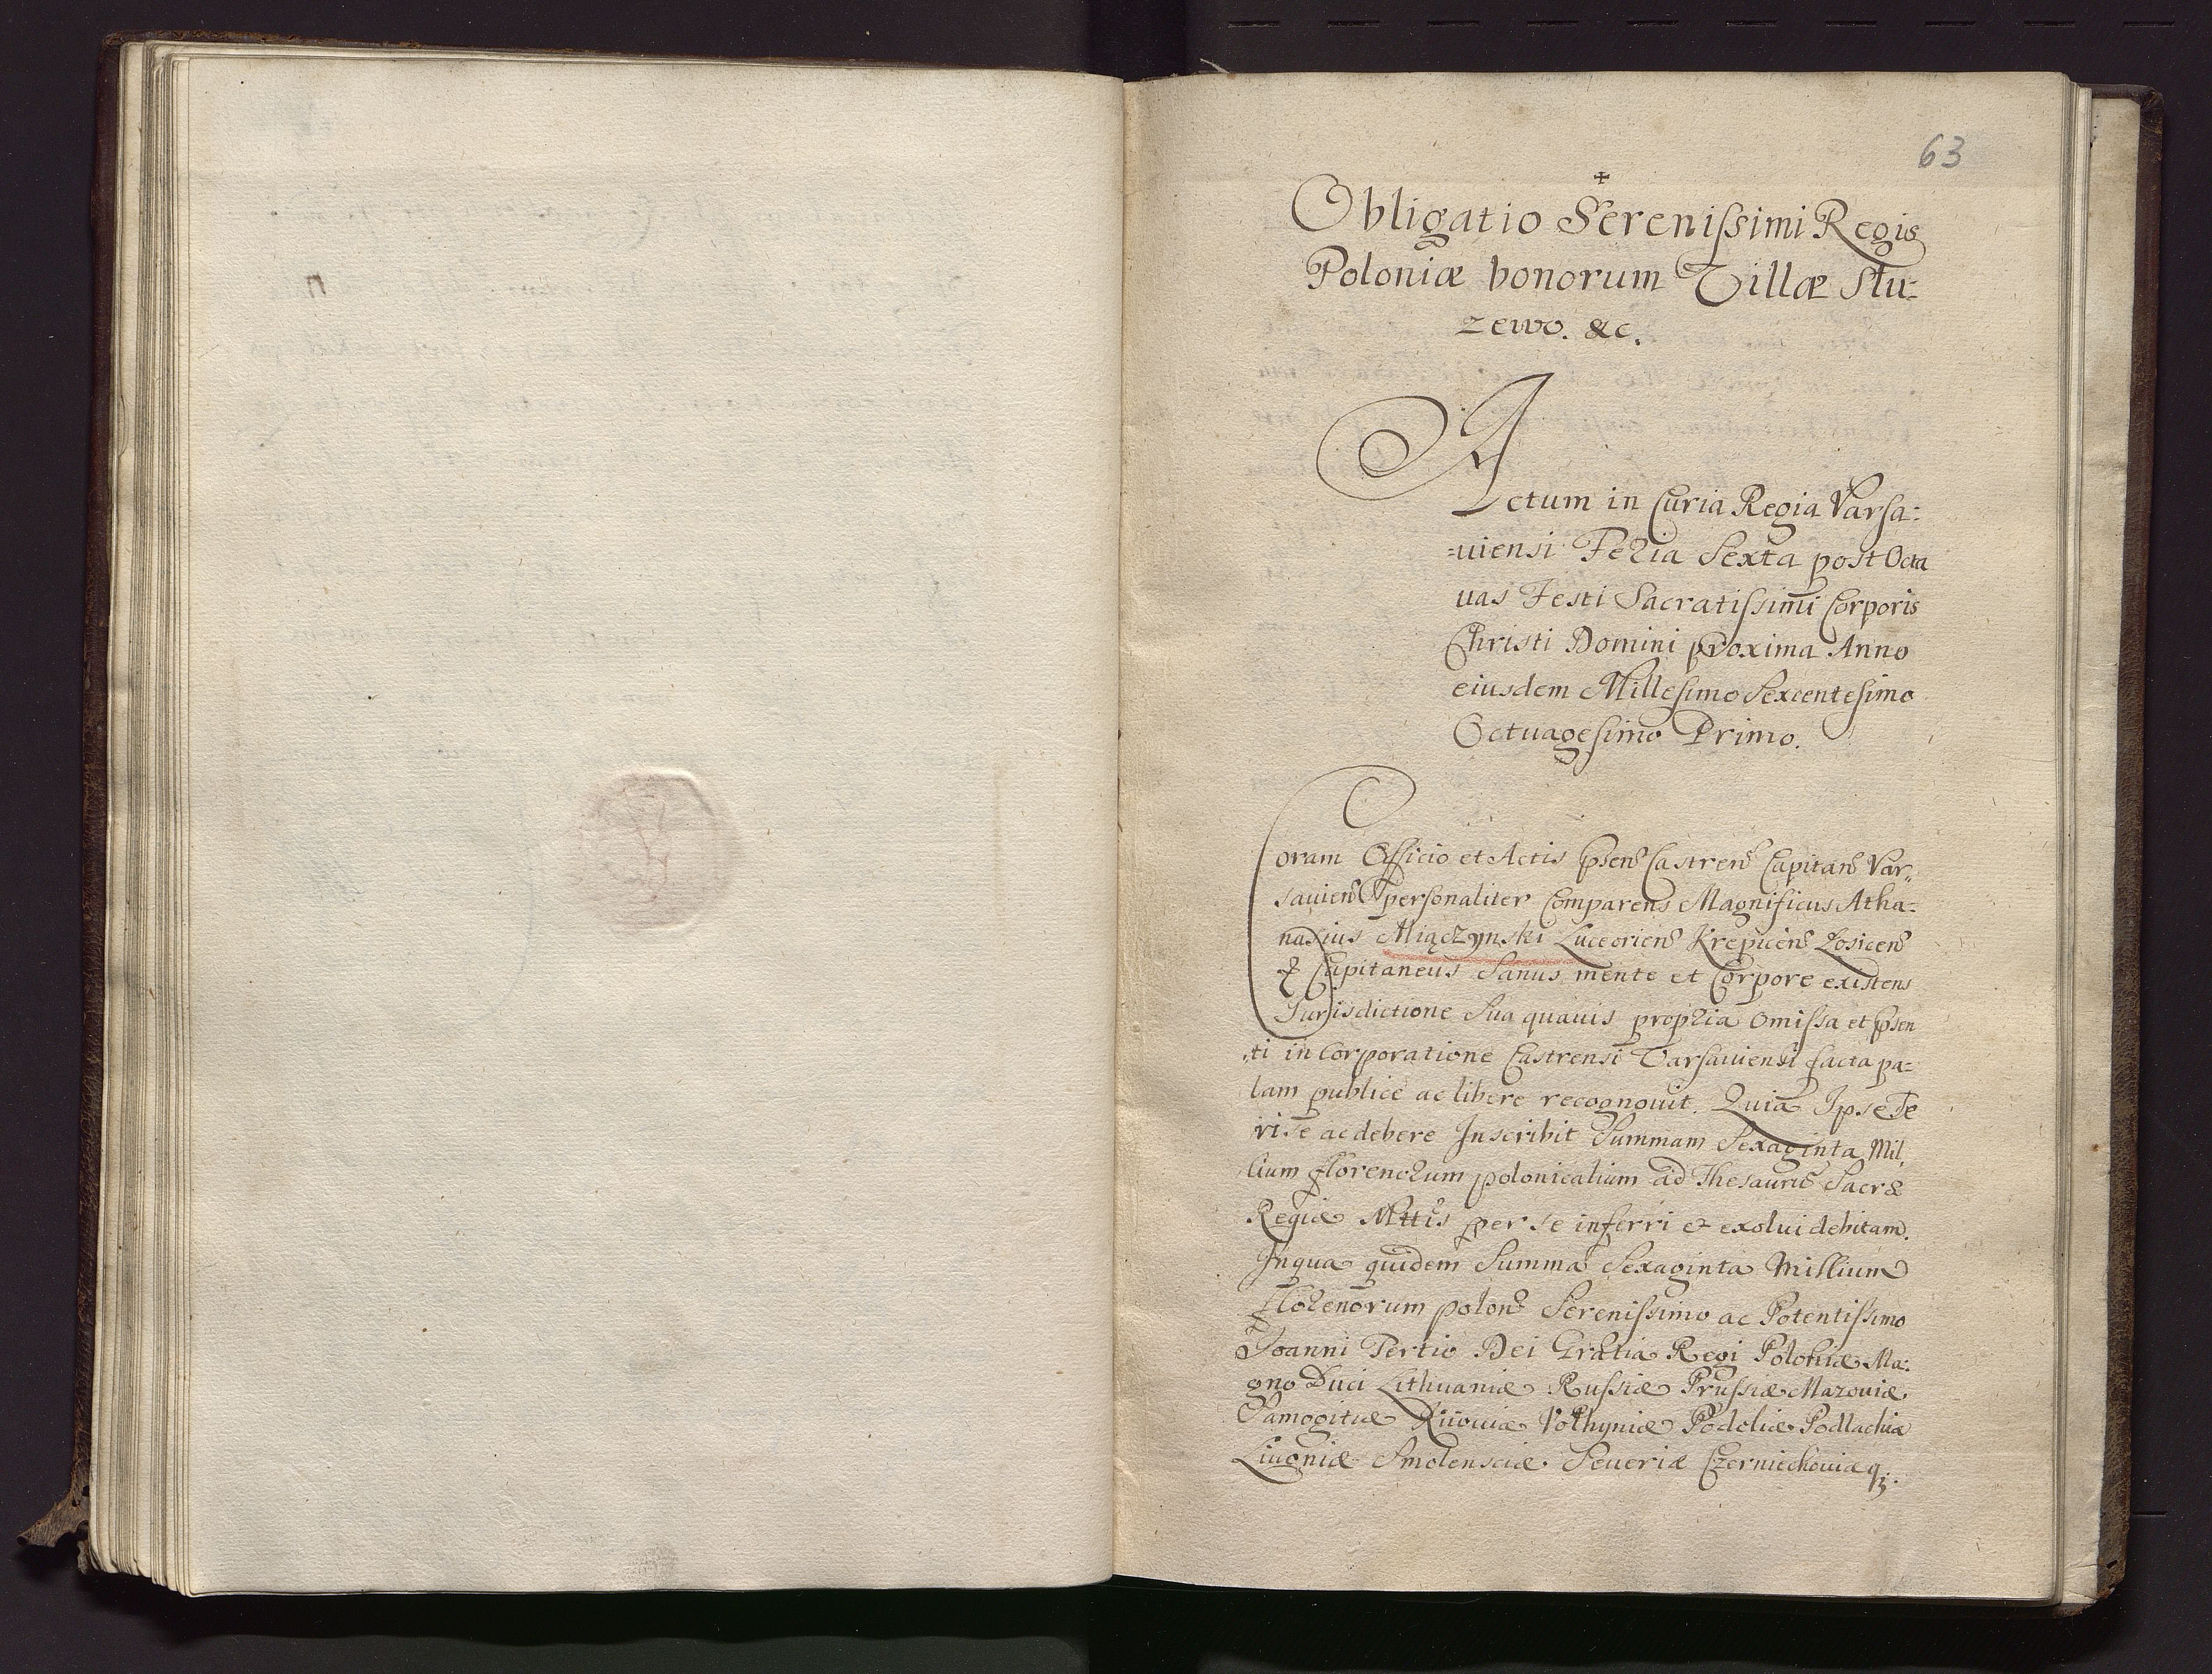 63
Obligatio Serenissimi Regis
Poloniæ bonorum Villæ Słu-
zewo. &c.
Actum in Curia Regia Varsa:
=uiensi Feria Sexta post Octa
uas Festi Sacratissimi Corporis
Christi Domini proxima Anno
eiusdem Millesimo Sexcentesimo
Octuagesimo Primo.
Coram Officio et Actis psens Castrens Capitans Var,,
sauiens personaliter Comparens Magnificus Atha=
nasius Miączynski Luceoriens Krepicens Łosicens
& Capitaneus Sanus mente et Corpore existens
Jurisdictione Sua quauis propria omissa et psen
,ti incorporatione Castrensi Varsauiensi facta pa=
lam publice ac libere recognouit. Quia Ipse Te
ri se ac debere Inscribit Summam Sexaginta Mil,
lium florenorum polonicalium ad Thesaurū Sacræ
Regiæ Mttis per se inferri et exolui debitam.
In qua quidem Summa Sexaginta Millium
Florenorum polons Serenissimo ac Potentissimo
Joanni Tertio Dei Gratia Regi Poloniæ Ma:
gno Duci Lithuaniæ Russiæ Prussiæ Mazouiæ
Samogitiæ Kiiouiæ Volhyniæ Podoliæ Podlachiæ
Liuoniæ Smolensciæ Seueriæ Czerniechouiæ q;.